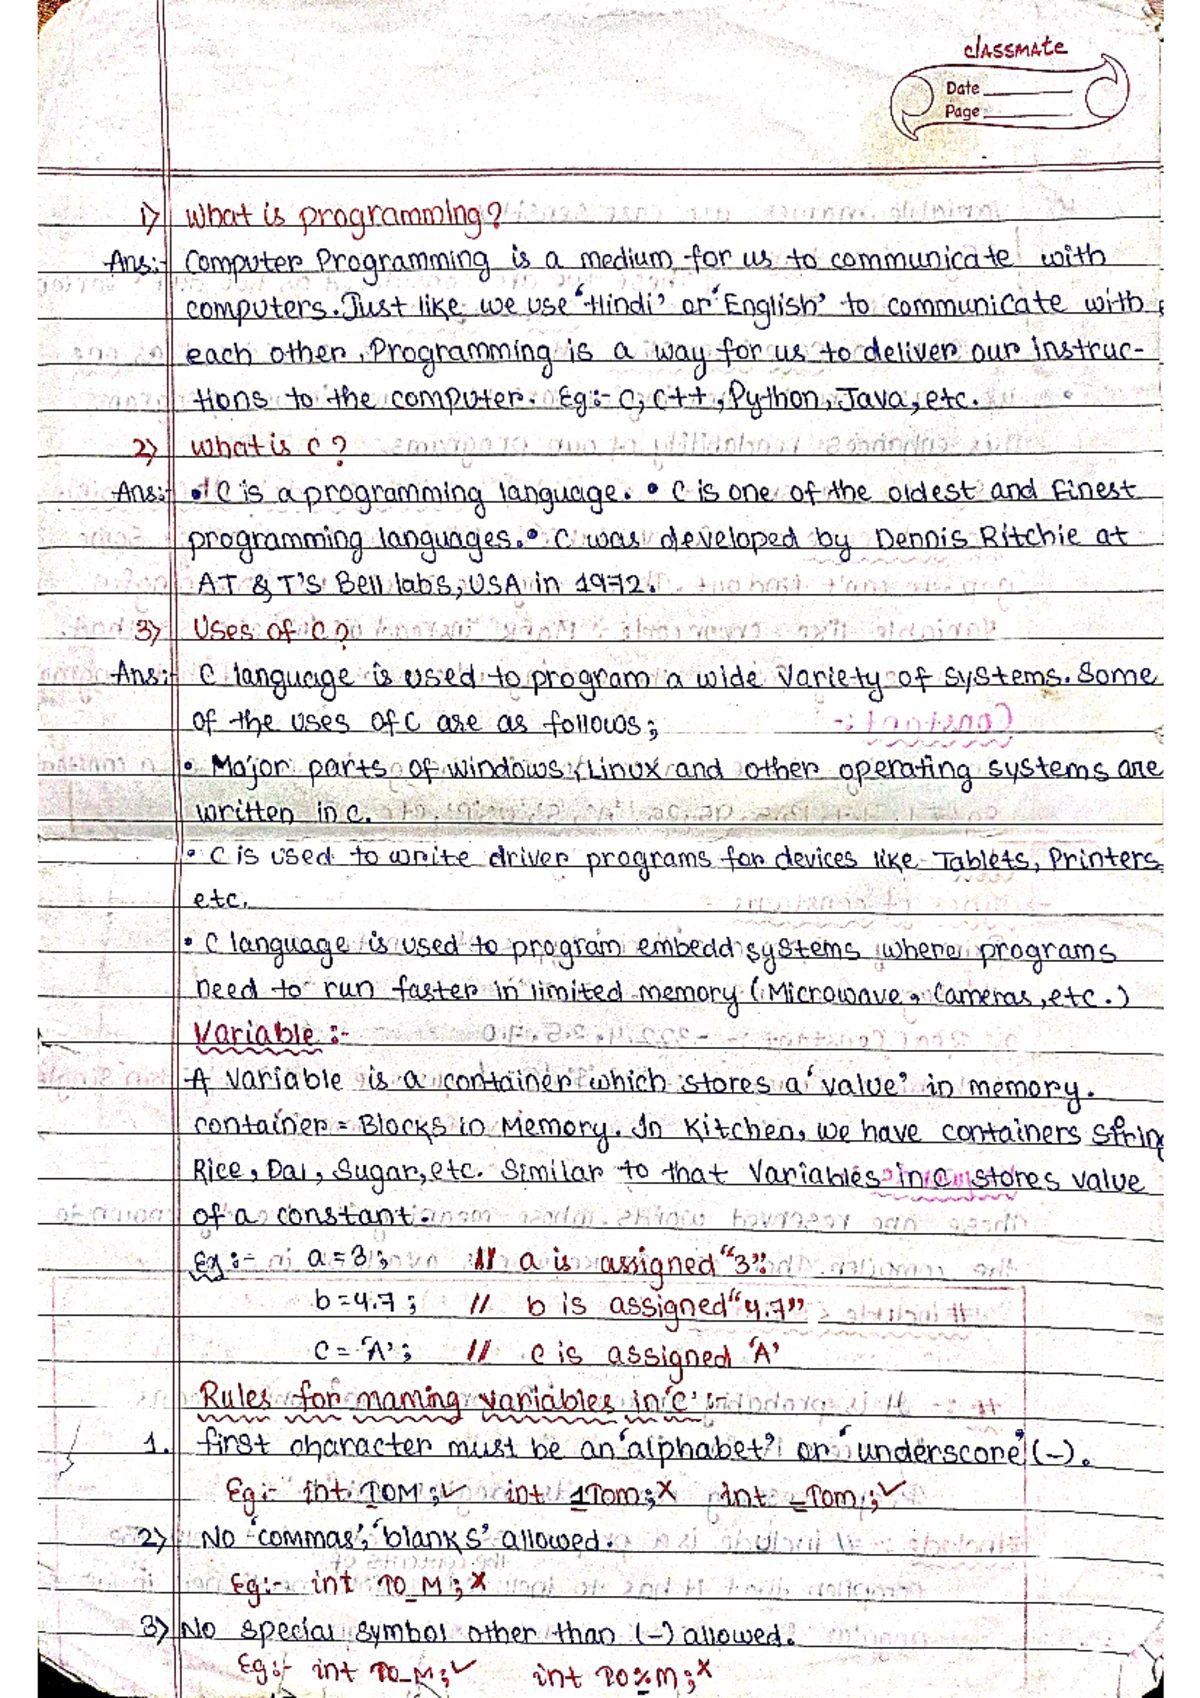 classmate
Date
Page
1) What is programming?
Ans:- Computer Programming is a medium for us to communicate with
computers. Just like we use 'Hindi' or 'English' to communicate with
each other, Programming is a way for us to deliver our instruc-
tions to the computer. Eg:- C, C++, Python, Java, etc.
2) What is C?
Ans:- • C is a programming language. • C is one of the oldest and finest
programming languages. • C was developed by Dennis Ritchie at
AT & T'S Bell labs, USA in 1972.
3) Uses of C?
Ans:- C language is used to program a wide variety of systems. Some
of the uses of C are as follows;
• Major parts of windows, Linux and other operating systems are
written in c.
• C is used to write driver programs for devices like Tablets, Printers
etc.
• C language is used to program embedd systems where programs
need to run faster in limited memory (Microwave, Cameras, etc.)
Variable :-
A variable is a container which stores a 'value' in memory.
container = Blocks in Memory. In Kitchen, we have containers
Rice, Dal, Sugar, etc. Similar to that Variables in C stores value
of a constant.
Eg :- a = 3; // a is assigned "3";
b = 4.7; // b is assigned "4.7"
C = 'A'; // c is assigned 'A'
Rules for maming variables in 'C' :-
1. first character must be an 'alphabet' or 'underscore' (-).
Eg:- int TOM; ✓ int 1Tom; × int _Tom; ✓
2) No 'commas', 'blanks' allowed.
Eg:- int TO_M; ×
3) No special symbol other than (-) allowed.
Eg:- int TO_M; ✓ int TO%M; ×